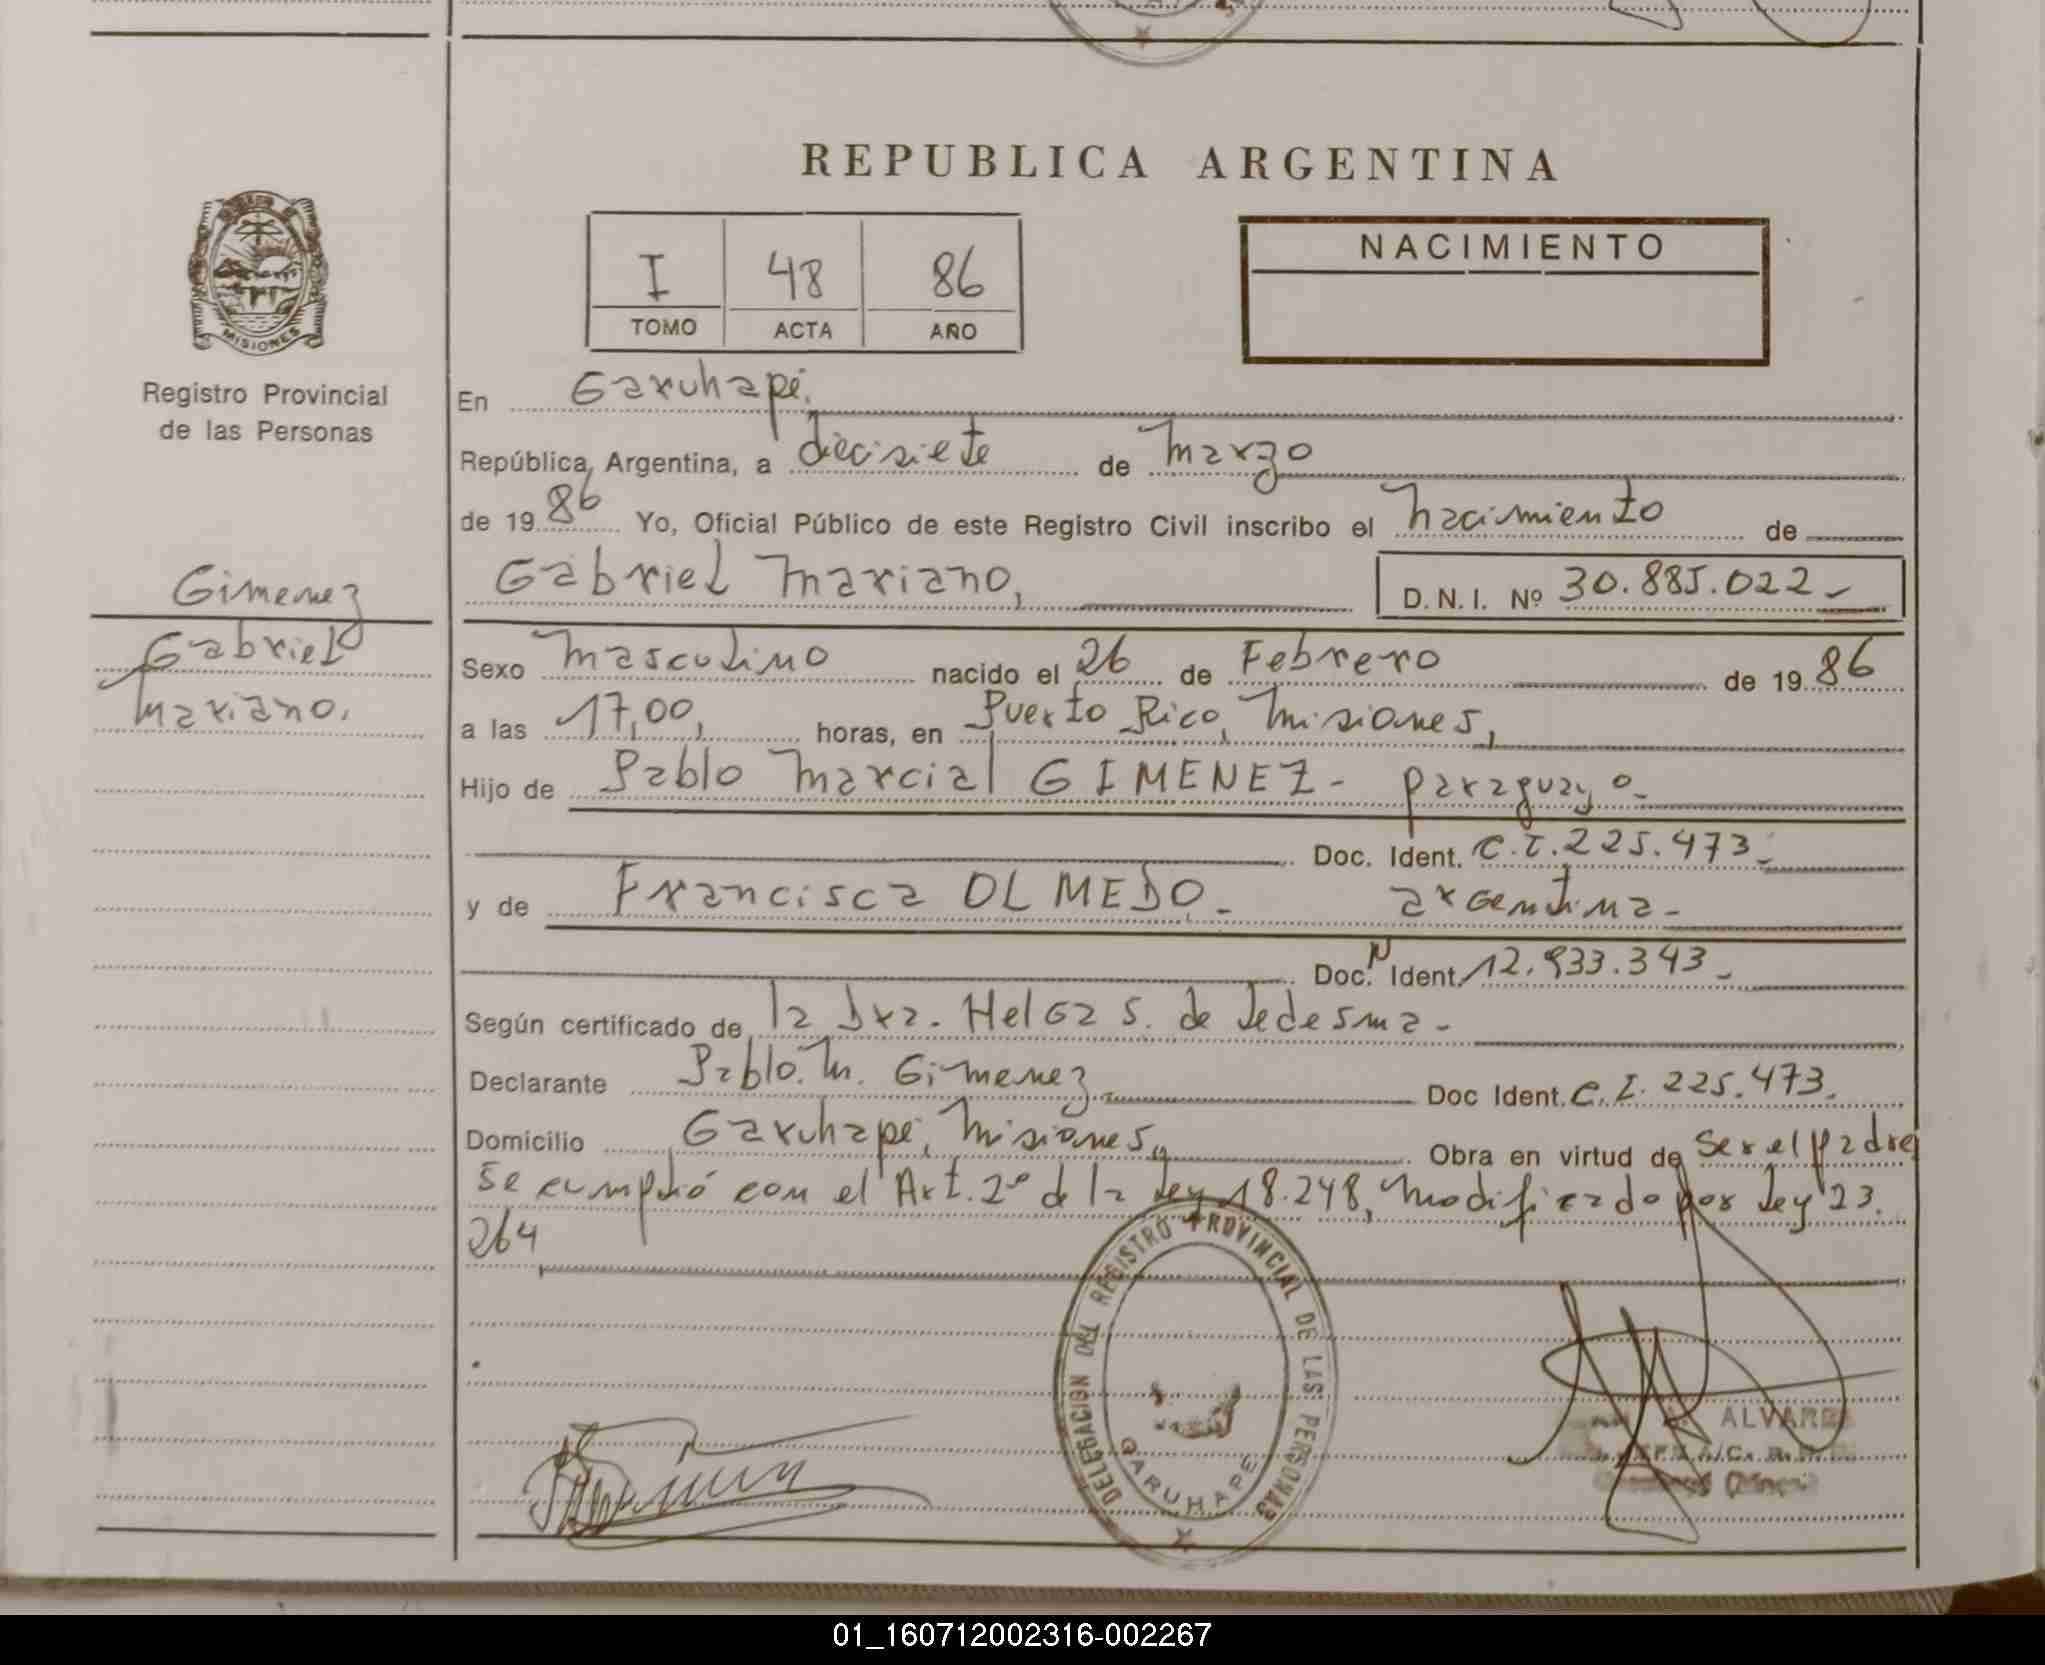 REPUBLICA ARGENTINA
I 48 86
TOMO ACTA AÑO
NACIMIENTO
MISIONES
Registro Provincial
de las Personas
Gimenez
Gabriel
Mariano.
En Garuhapé,
República Argentina, a diecisiete de Marzo
de 1986 Yo, Oficial Público de este Registro Civil inscribo el Nacimiento de
Gabriel Mariano, D. N. I. Nº 30.885.022-
Sexo Masculino nacido el 26 de Febrero de 1986
a las 17,00, horas, en Puerto Rico, Misiones,
Hijo de Pablo Marcial GIMENEZ- paraguayo-
Doc. Ident. C.I.225.473-
y de Francisca OLMEDO.- argentina-
Doc. N Ident. 12.933.343-
Según certificado de la Dra. Helga S. de Ledesma-
Declarante Pablo. M. Gimenez Doc Ident. C.I. 225.473.
Domicilio Garuhapé, Misiones, Obra en virtud de Ser el padre
Se cumplió con el Art. 2º de la Ley 18.248, modificado por Ley 23.
264
DELEGACION DEL REGISTRO PROVINCIAL DE LAS PERSONAS
GARUHAPE
ALVAREZ
01_160712002316-002267